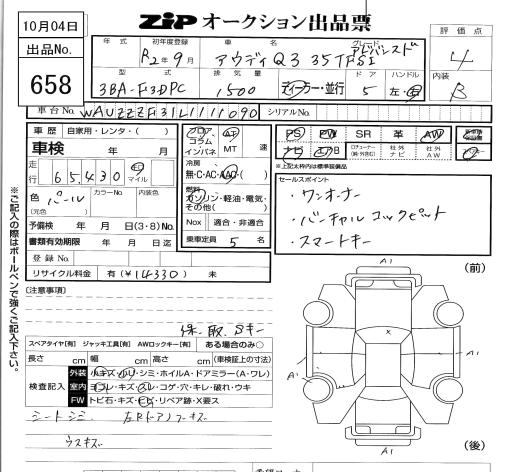 10月04日
出品No.
658
ZIP オークション出品票
年式 初年度登録 車名 グレード
R2年9月 アウディQ3 35TFSI アドバンスド
評価点
4
型式 排気量 ドア ハンドル
3BA-F3DPC 1500 ディーラー・並行 5 左・右
内装
B
車台No. WAUZZZF31L1111090 シリアルNo.
車歴 自家用・レンタ・( )
車検 年 月
走行 65,430 km マイル
色 パール カラーNo. 内装色
(元色)
予備検 年 月 日(3・8)No.
書類有効期限 年 月 日迄
登録No.
リサイクル料金 有(¥14330) 未
フロア AT
コラム
インパネ MT 速
冷房
無・C・AC・AAC・( )
燃料
ガソリン・軽油・電気・
その他( )
Nox 適合・非適合
乗車定員 5 名
PS PW SR 革 AW
ナビ TVB 社外ナビ 社外AW
※上記太枠内は標準装備品
セールスポイント
・ワンオーナー
・バーチャルコックピット
・スマートキー
※ご記入の際はボールペンで強くご記入下さい。
[注意事項]
保・取、Sキー
スペアタイヤ[有] ジャッキ工具[有] AWロックキー[有] ある場合のみ○
長さ cm 幅 cm 高さ cm (車検証上の寸法)
検査記入
外装 小キズ・小ノリ・シミ・ホイルA・ドアミラー(A・ワレ)
室内 ヨゴレ・キズ・スレ・コゲ・穴・キレ・破れ・ウキ
FW トビ石・キズ・ヒビ・リペア跡・X要ス
シートシミ 左Rドア
ウスキズ
(前)
A1
A1
A1
A1
(後)